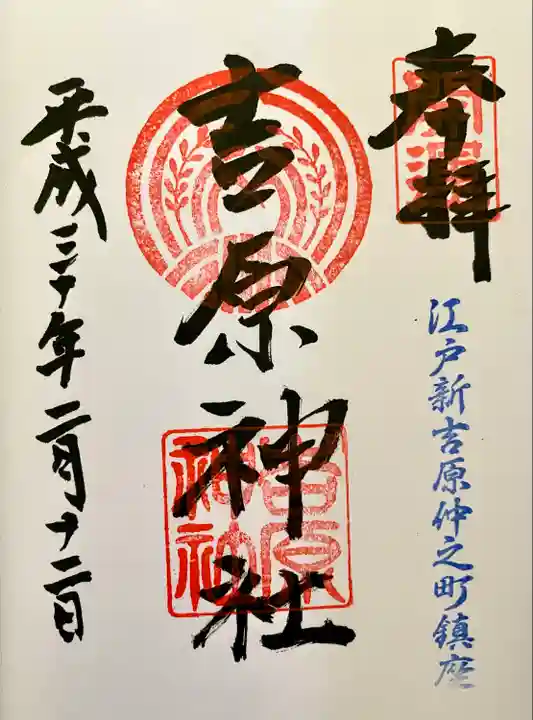 奉拝
江戸新吉原仲之町鎮座
吉原神社
吉原神社
平成三十年二月十二日